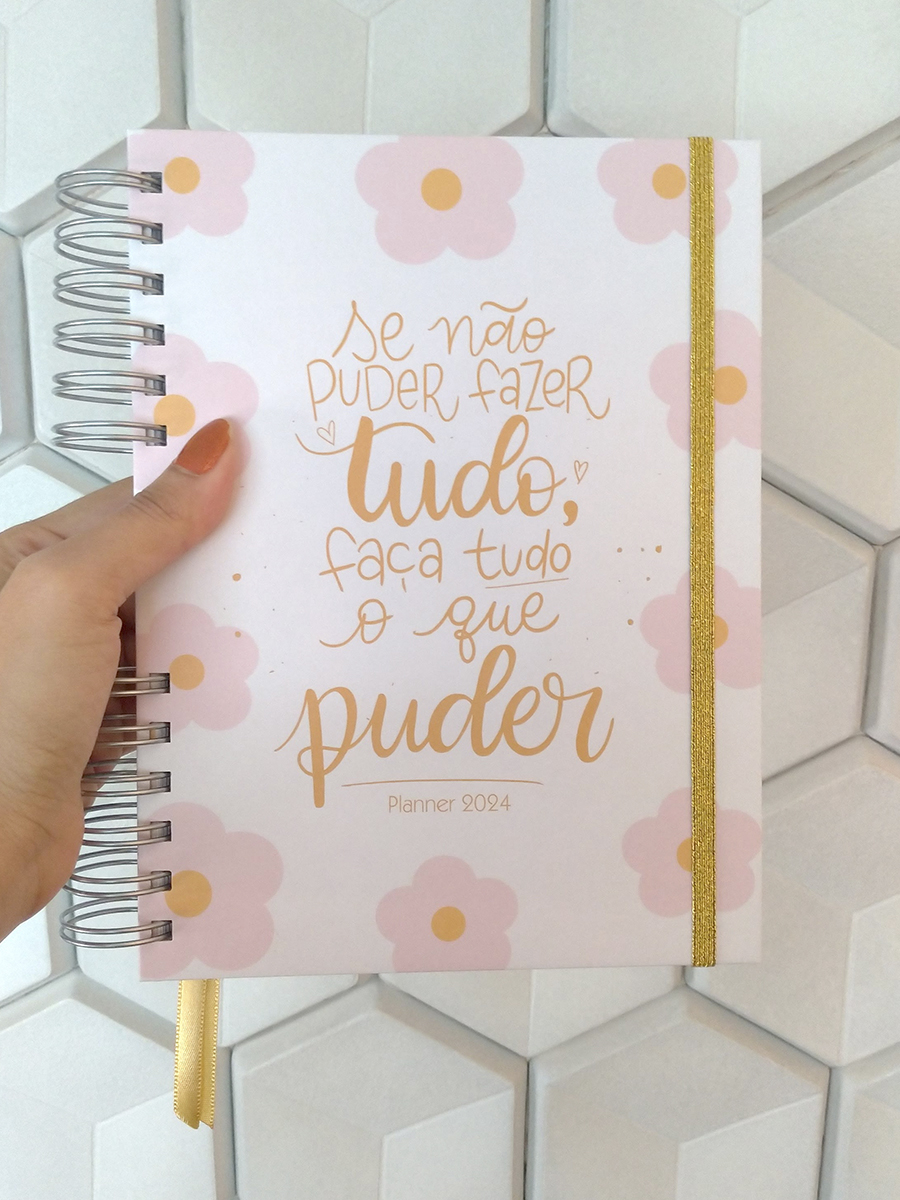 se não
PUDER fazer
tudo,
faça tudo
o que
puder
Planner 2024